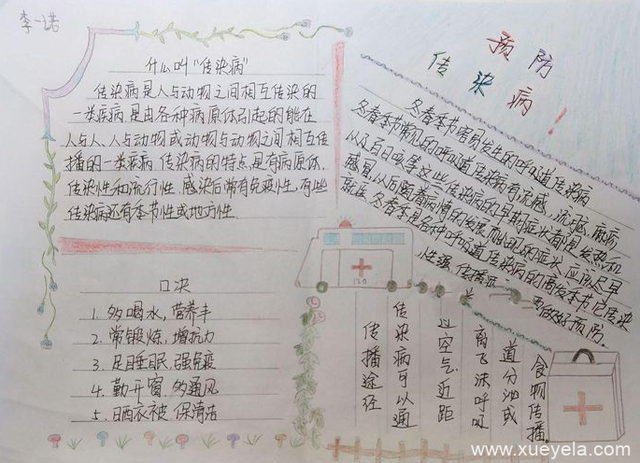 李一诺
什么叫“传染病”
传染病是人与动物之间相互传染的
一类疾病,是由各种病原体引起的能在
人与人、人与动物或动物与动物之间相互传
播的一类疾病 传染病的特点是有病原体,
传染性和流行性 感染后常有免疫性,有些
传染病还有季节性或地方性.
口决
1. 多喝水,营养丰
2. 常锻炼,增抗力
3. 足睡眠,强免疫
4. 勤开窗,多通风
5. 晒衣被 保清洁
预防
传染病!
冬春季节容易发生的呼吸道传染病
冬春季节常见的呼吸道传染病有流感,流脑,麻疹,
以及百日咳等这些传染病的早期症状都同
感冒 以后随着病情的发展 的症状 应尽早
就医 冬春季是各种呼吸道传染病的高发季节,它传染
性强,传播
做好预防.
120
传播途径
传染病可以通
过空气,近距
离飞沫呼吸
道分泌或
食物传播.
www.xueyela.com